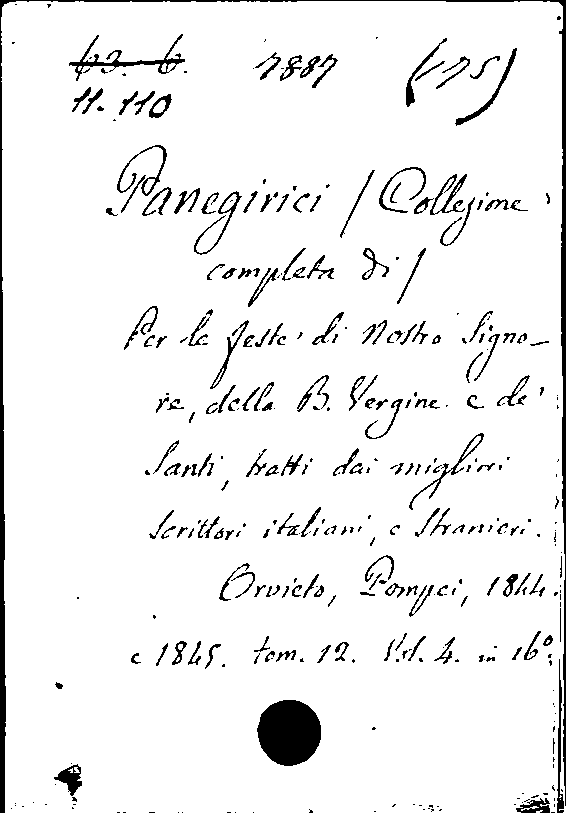 63. 6. 7887 (175)
11. 110
Panegirici / Collezione
completa di /
Per le feste di Nostro Signo-
re, della B. Vergine e de'
Santi, tratti dai migliori
scrittori italiani, e stranieri.
Orvieto, Pompei, 1844.
e 1845. tom. 12. Vol. 4. in 16º.